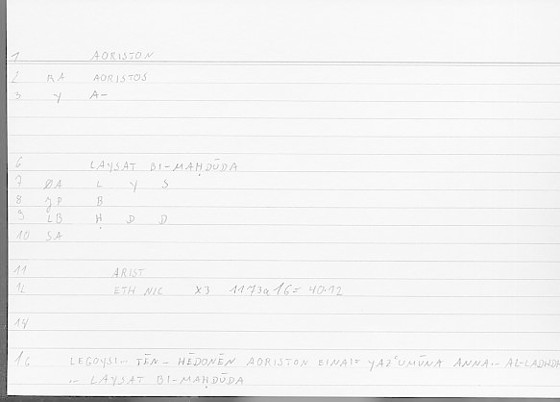 1 AORISTON
2 AORISTOS
3 Y A-
6 LAYSAT BI-MAḤDŪDA
7 ØA L Y S
8 JP B
9 LB Ḥ D D
10 SA
11 ARIST
12 ETH NIC X3 1173a16 = 40.12
14
16 LEGOYSI.. TĒN- HĒDONĒN AORISTON EINAI: YAZ‘UMŪNA ANNA..
.. LAYSAT BI-MAḤDŪDA